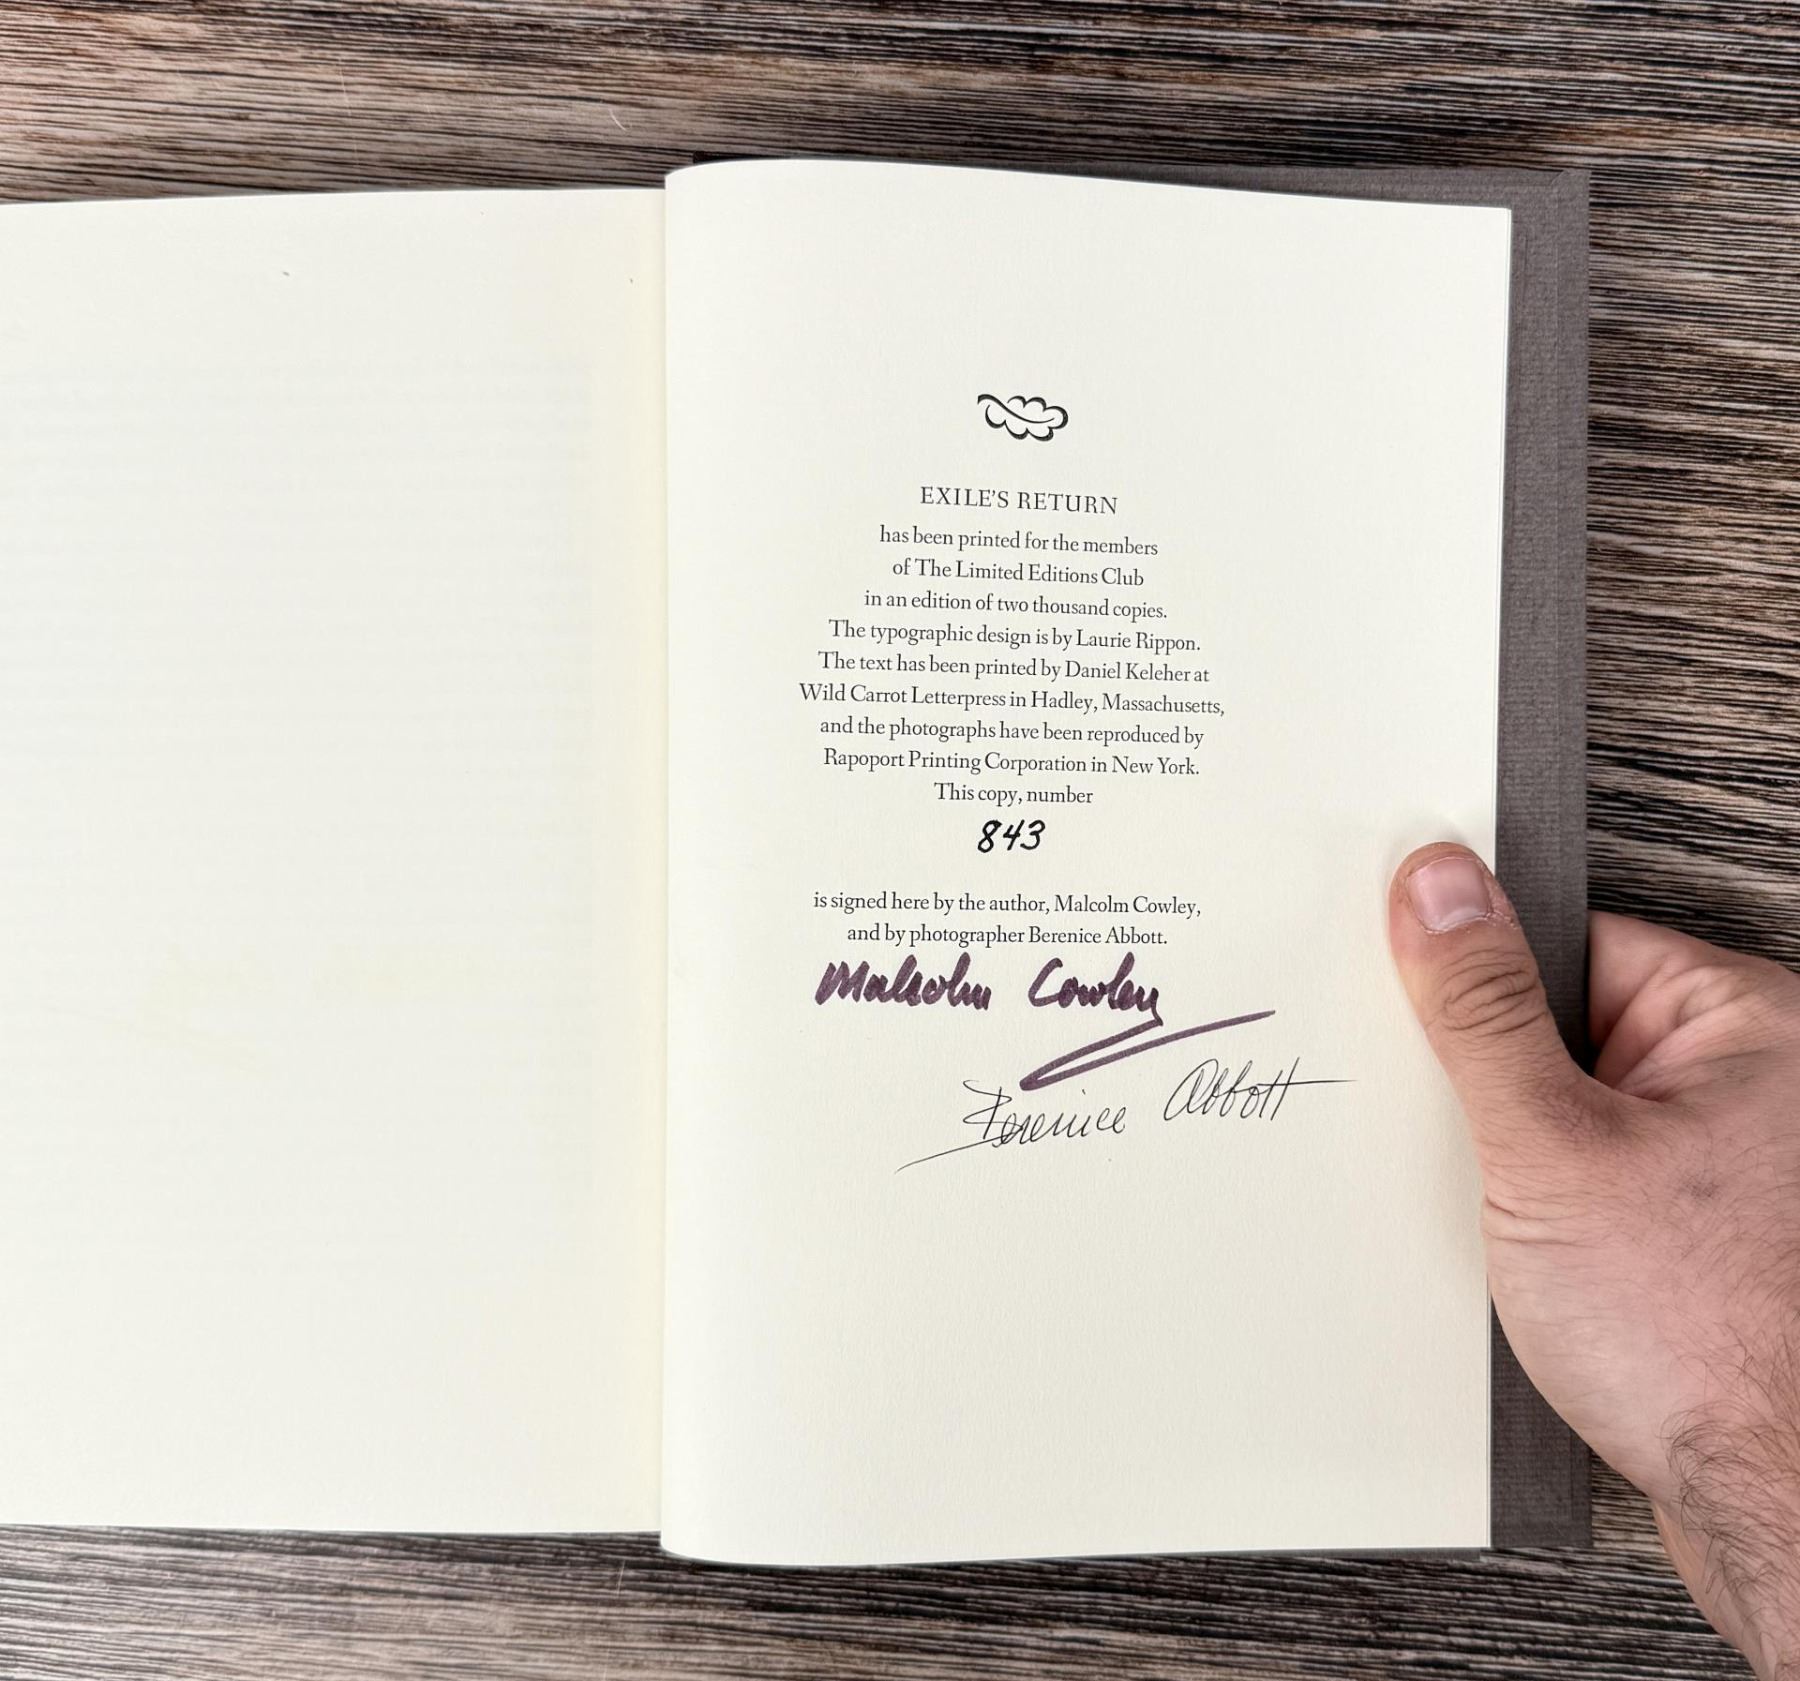 EXILE'S RETURN
has been printed for the members
of The Limited Editions Club
in an edition of two thousand copies.
The typographic design is by Laurie Rippon.
The text has been printed by Daniel Keleher at
Wild Carrot Letterpress in Hadley, Massachusetts,
and the photographs have been reproduced by
Rapoport Printing Corporation in New York.
This copy, number
843
is signed here by the author, Malcolm Cowley,
and by photographer Berenice Abbott.
Malcolm Cowley
Berenice Abbott